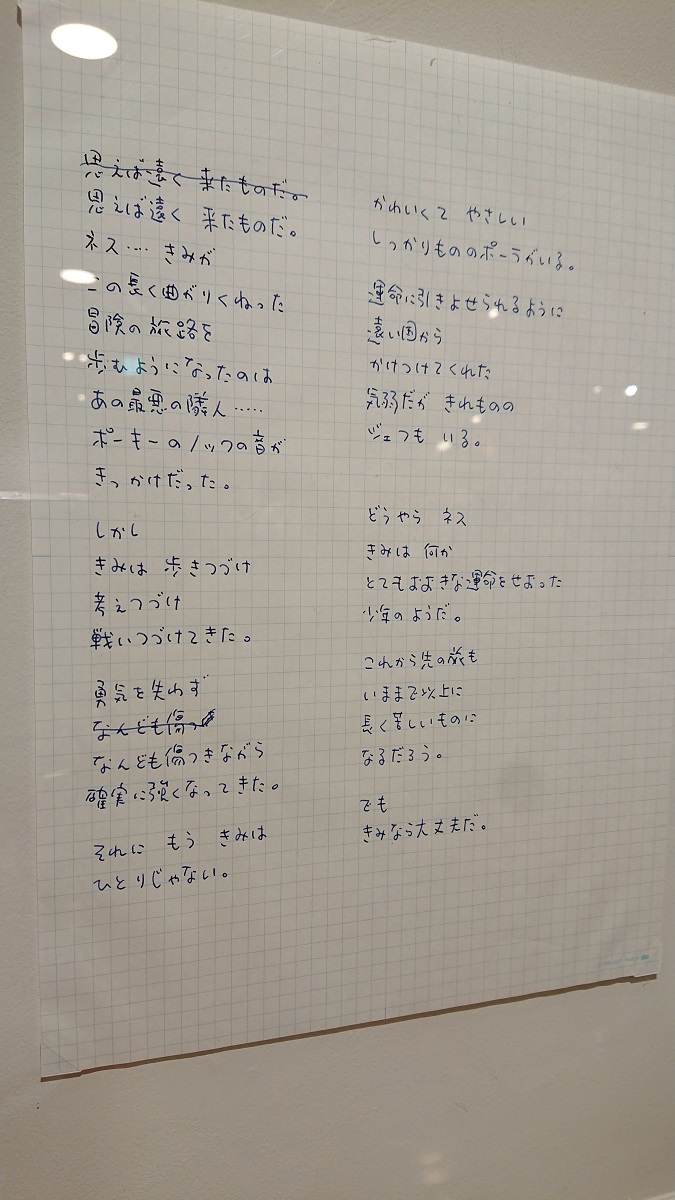 思えば遠く 来たものだ。
思えば遠く 来たものだ。
ネス‥‥ きみが
この長く曲がりくねった
冒険の旅路を
歩むようになったのは
あの最悪の隣人‥‥‥
ポーキーのノックの音が
きっかけだった。
しかし
きみは 歩きつづけ
考えつづけ
戦いつづけてきた。
勇気を失わず
なんども傷つ
なんども傷つきながら
確実に強くなってきた。
それに もう きみは
ひとりじゃない。
かわいくて やさしい
しっかりもののポーラがいる。
運命に引きよせられるように
遠い国から
かけつけてくれた
気弱だが きれものの
ジェフも いる。
どうやら ネス
きみは 何か
とてもおおきな運命をせおった
少年のようだ。
これから先の旅も
いままで以上に
長く苦しいものに
なるだろう。
でも
きみなら大丈夫だ。